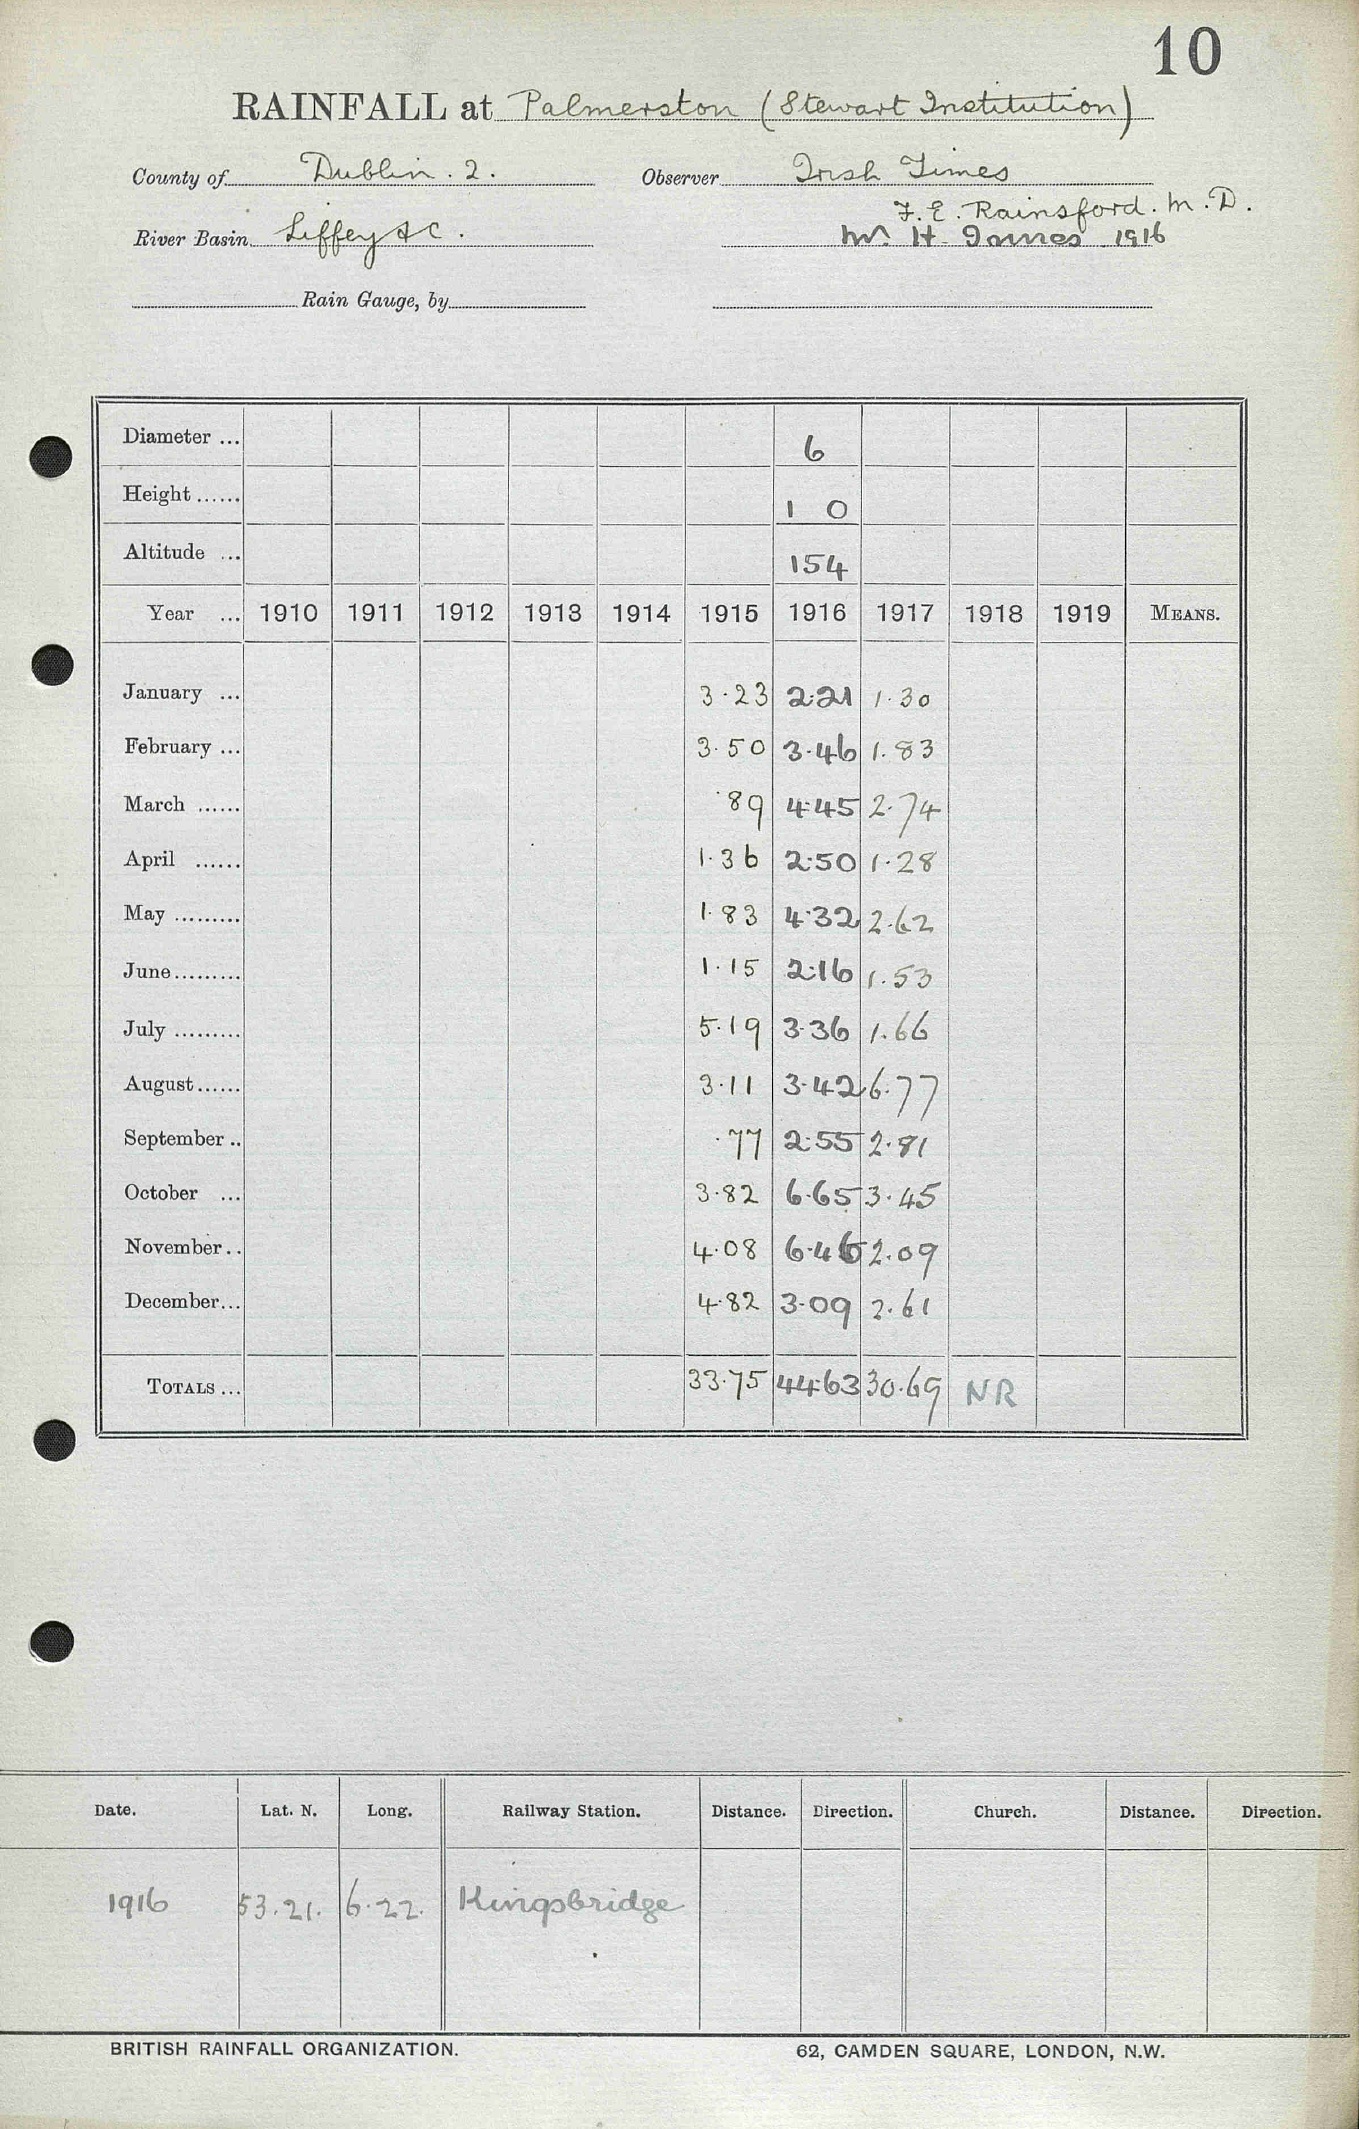 10
RAINFALL at Palmerston (Stewart Institution)
County of Dublin. 2. Observer Irish Times
F. E. Rainsford. M. D.
River Basin Liffey &c. Mr. H. Innes 1916
Rain Gauge, by
Diameter ... 6
Height ...... 1 0
Altitude ... 154
Year ... 1910 1911 1912 1913 1914 1915 1916 1917 1918 1919 MEANS.
January ... 3.23 2.21 1.30
February ... 3.50 3.46 1.83
March ...... .89 4.45 2.74
April ...... 1.36 2.50 1.28
May ......... 1.83 4.32 2.62
June ......... 1.15 2.16 1.53
July ......... 5.19 3.36 1.66
August ...... 3.11 3.42 6.77
September .. .77 2.55 2.81
October ... 3.82 6.65 3.45
November .. 4.08 6.46 2.09
December ... 4.82 3.09 2.61
TOTALS ... 33.75 44.63 30.69 NR
Date. Lat. N. Long. Railway Station. Distance. Direction. Church. Distance. Direction.
1916 53.21. 6.22. Kingsbridge
BRITISH RAINFALL ORGANIZATION. 62, CAMDEN SQUARE, LONDON, N.W.